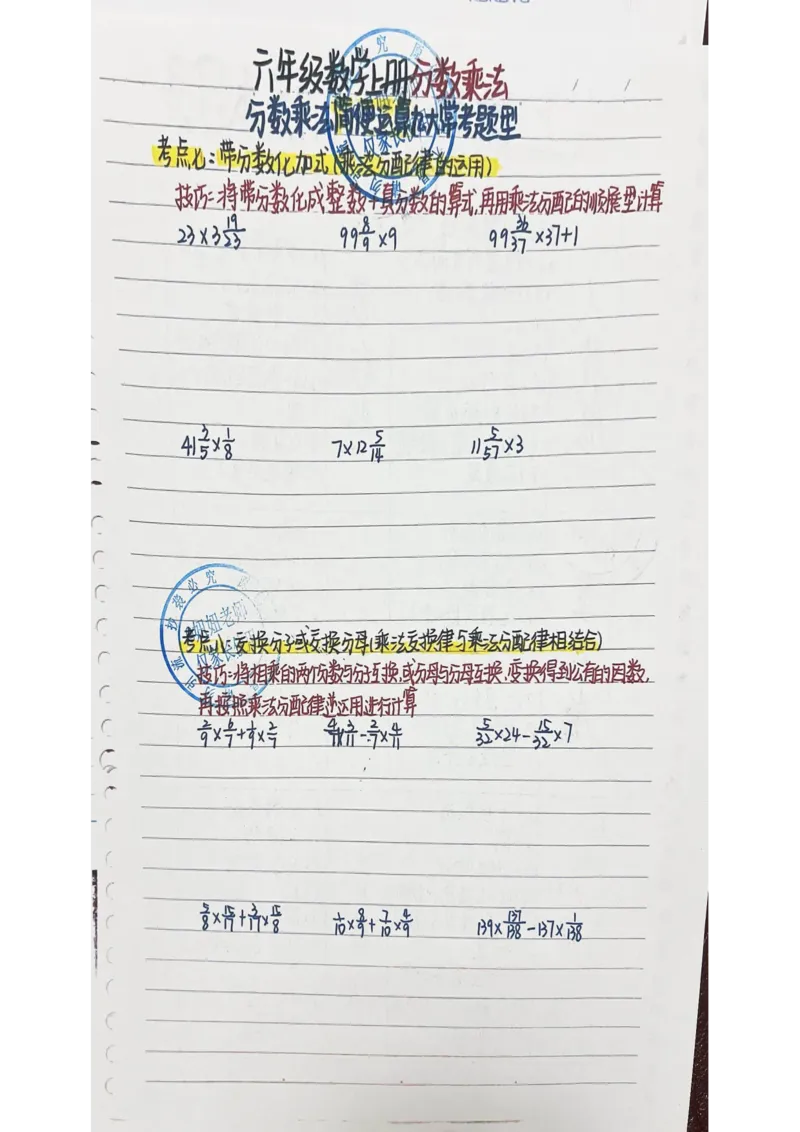 六年级数学上册分数乘法
分数乘法简便运算九大常考题型
考点七：带分数化加式(乘法分配律的运用)
技巧：将带分数化成整数+真分数的算式,再用乘法分配的顺展型计算
23×3 19/23 99 8/9 ×9 99 36/37 ×37+1
41 2/5 × 1/8 7×12 5/14 11 5/57 ×3
考点八:交换分子或交换分母(乘法交换律与乘法分配律相结合)
技巧:将相乘的两个分数分子互换,或分母与分母互换,变换得到公有的因数,
再按照乘法分配律逆运用进行计算
2/9 × 6/7 + 1/9 × 2/7 4/7 × 3/11 - 2/7 × 4/11 5/32 ×24- 15/32 ×7
5/8 × 15/17 + 3/17 × 15/8 1/10 × 8/9 + 7/10 × 4/9 139× 137/138 -137× 1/138